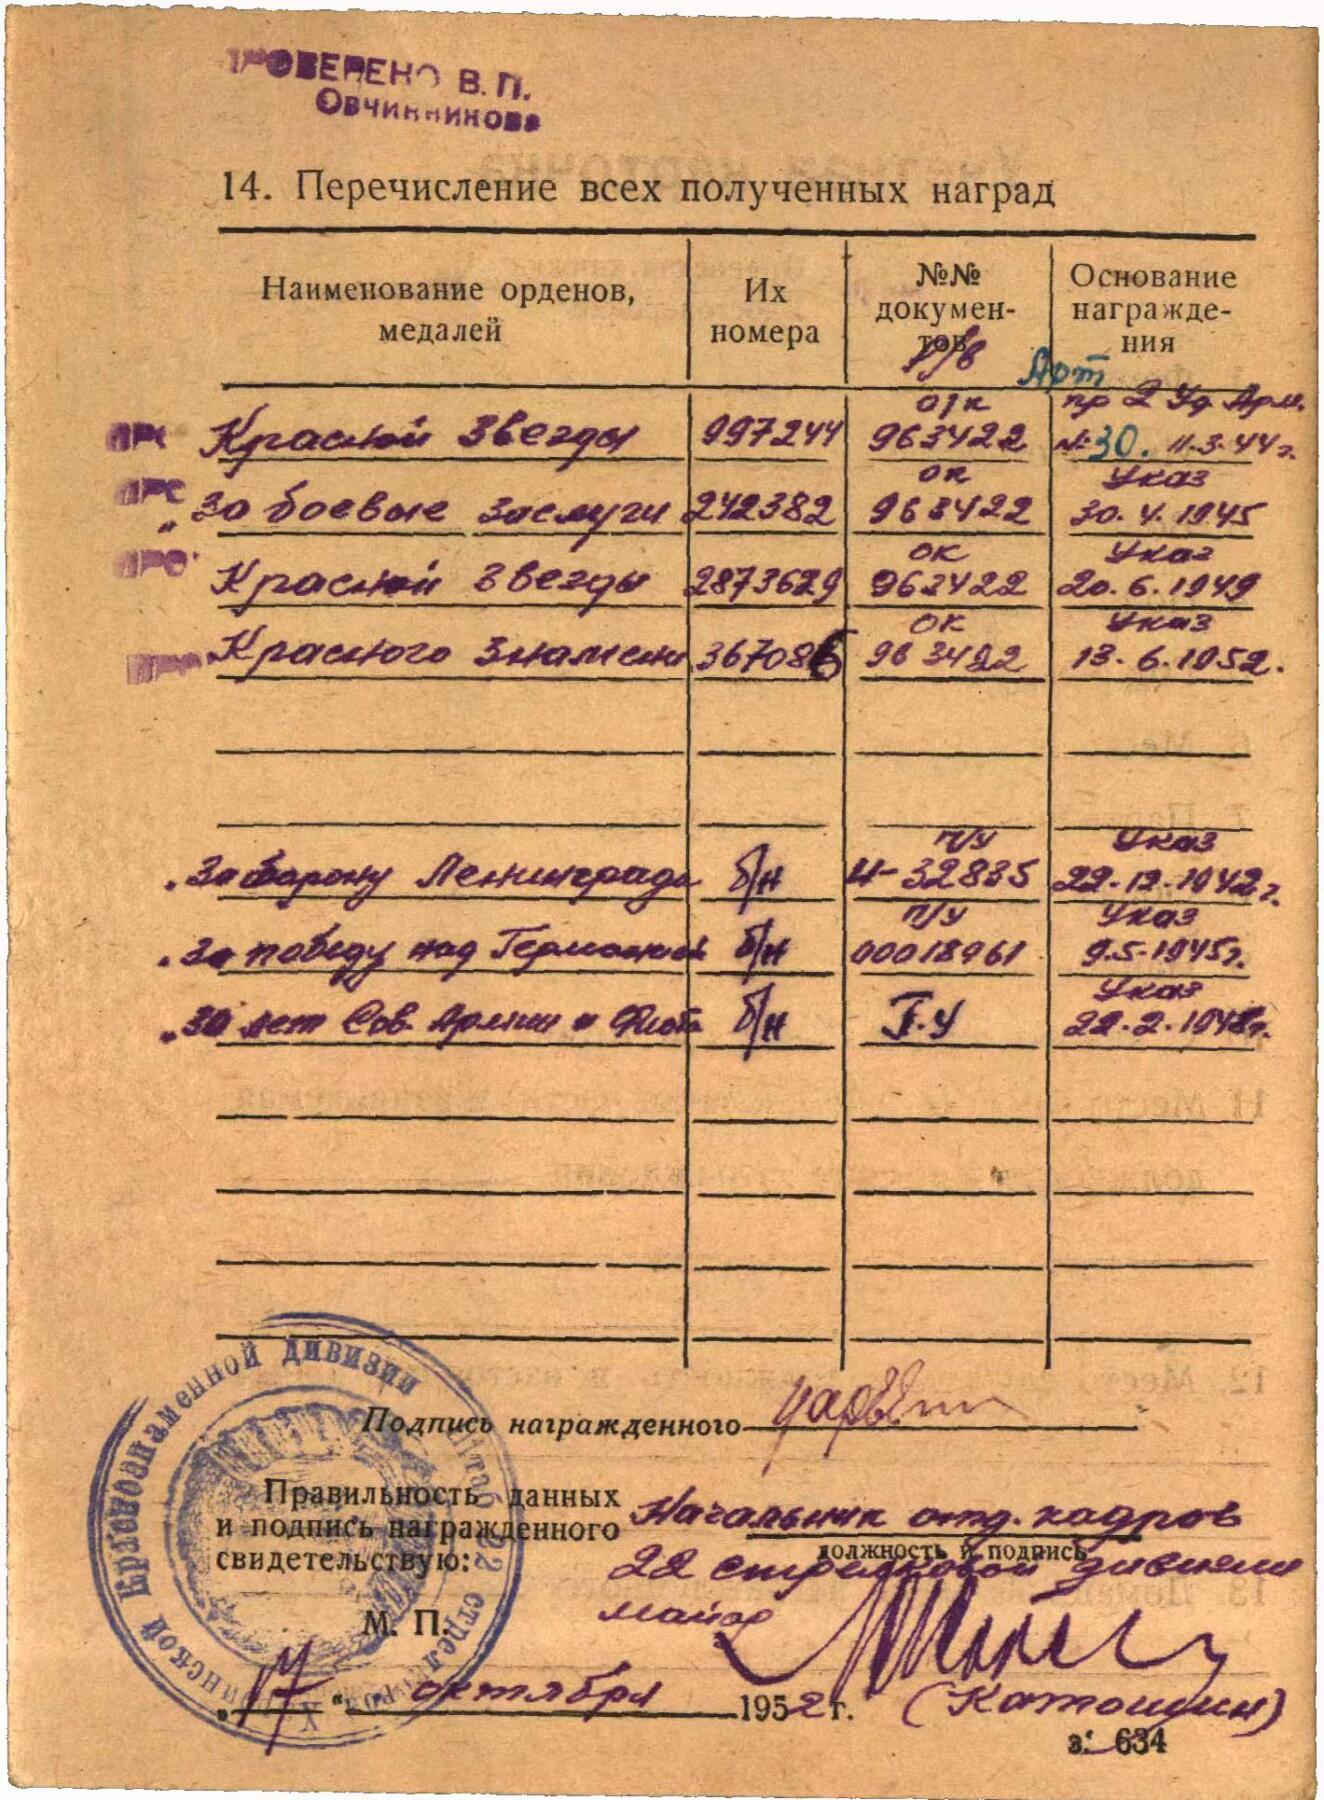 ПРОВЕРЕНО В. П.
Овчинникова
14. Перечисление всех полученных наград
Наименование орденов, медалей
Их номера
№№ документов
Основание награждения
р/в
Арт
о/к пр 2 Уд Арм.
Красной Звезды 997244 963422 № 30. 11.3.44 г.
ок Указ
За боевые заслуги 242382 963422 30.4.1945
ок Указ
Красной Звезды 2873629 963422 20.6.1949
ок Указ
Красного Знамени 367086 963422 13.6.1952.
п/у Указ
За оборону Ленинграда б/н И-32835 22.12.1942 г.
п/у Указ
За победу над Германией б/н 00018961 9.5.1945 г.
Указ
30 лет Сов. Армии и Флота б/н Г.У 22.2.1948 г.
Подпись награжденного
Правильность данных
и подпись награжденного
свидетельствую:
Начальник отд. кадров
должность и подпись
22 стрелковой дивизии
майор
М. П.
„17“ октября 1952 г.
(Катошин)
з. 634
Штаб 22 стрелковой Краснознаменной дивизии